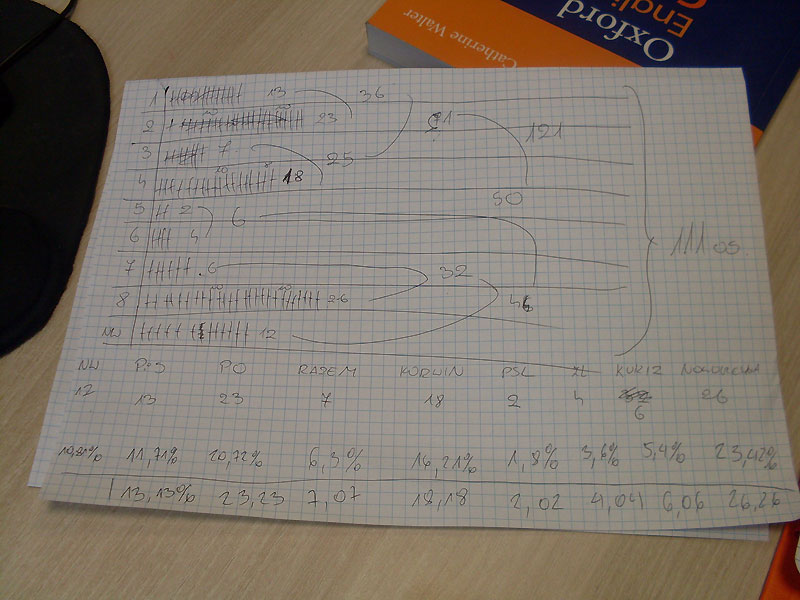 Oxford
English
Catherine Walter
1 13 36
2 23 71 121
3 7 25
4 18
50
5 2 6
6 4 111 os.
7 6 32
8 26 46
NW 12
NW PiS PO RAZEM KORWIN PSL ZL KUKIZ NOWOCZESNA
12 13 23 7 18 2 4 6 26
10,81% 11,71% 20,72% 6,3% 16,21% 1,8% 3,6% 5,4% 23,42%
13,13% 23,23 7,07 18,18 2,02 4,04 6,06 26,26